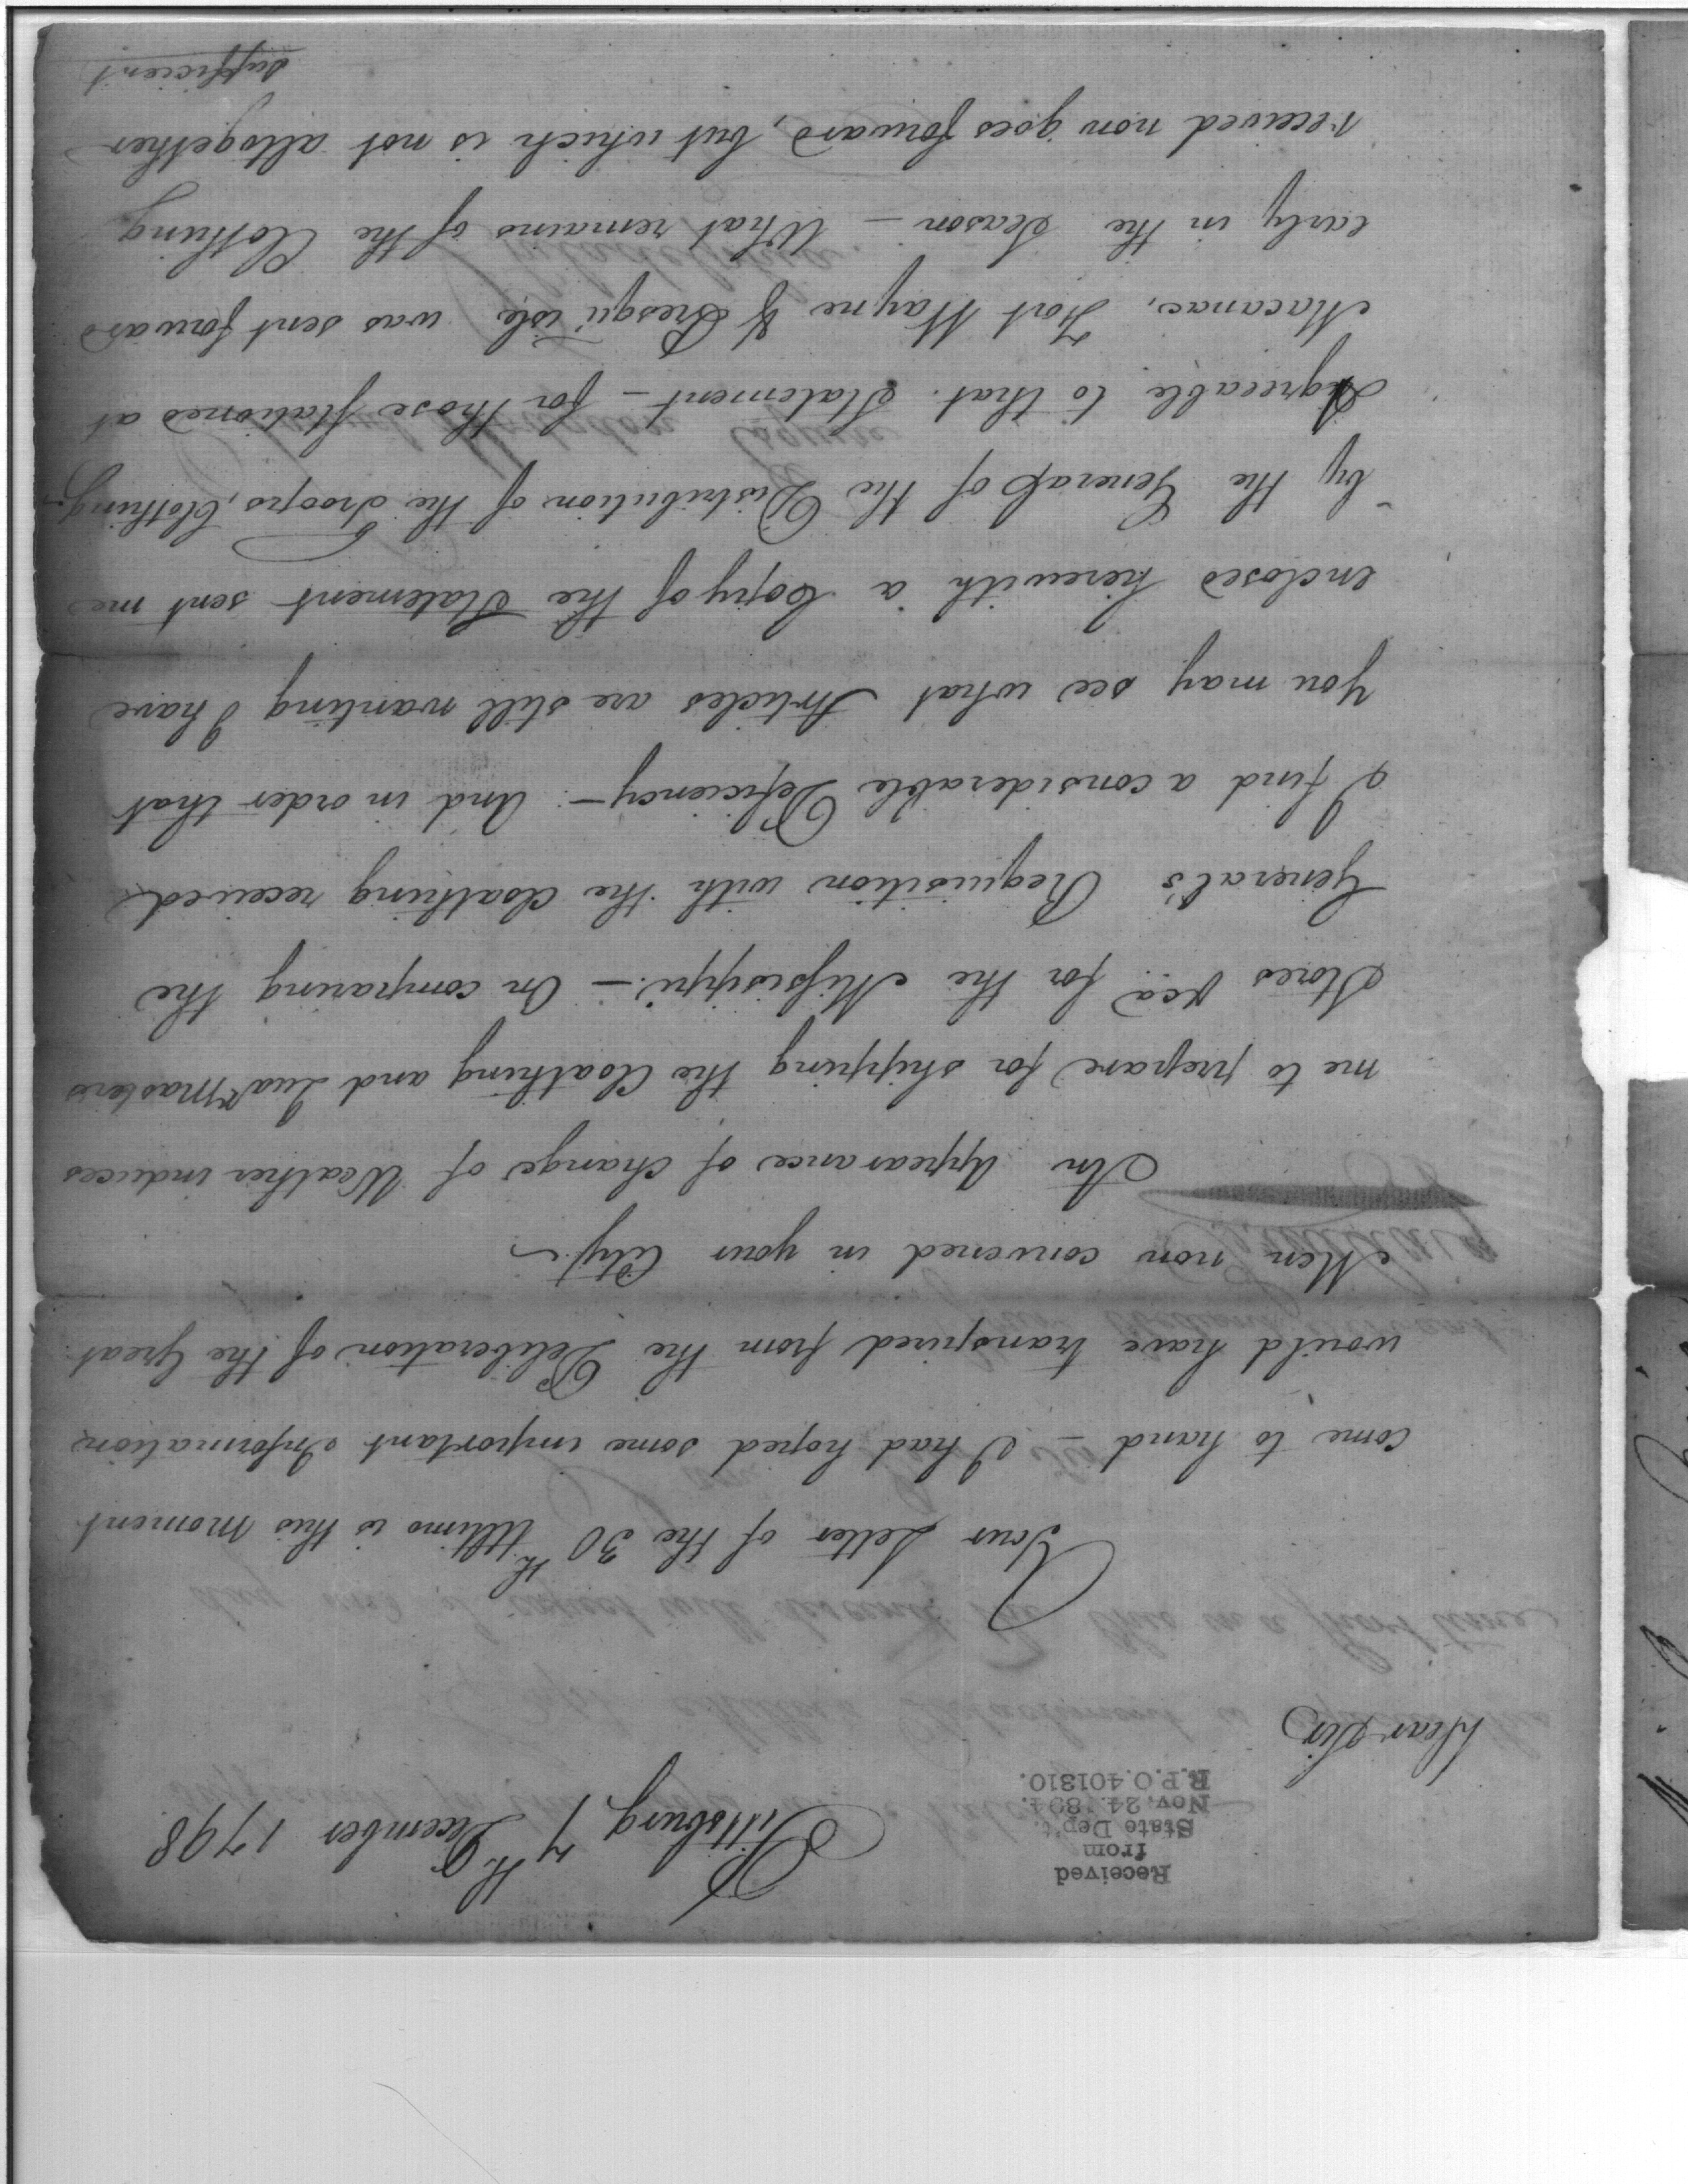 Received
from
State Dep't.
Nov. 24. 1894.
R.P.O. 401310.
Pittsburg 7th December 1798
Dear Sir
Your Letter of the 30th Ultimo is this moment
come to hand – I had hoped some important Information
would have transpired from the Deliberation of the Great
Men now convened in your City –
An Appearance of change of Weather induces
me to prepare for shipping the Cloathing and Quar Masters
Stores for the Missisippi. – On comparing the
General's Requisition with the Cloathing received
I find a considerable Deficiency – And in order that
you may see what Articles are still wanting I have
enclosed herewith a Copy of the Statement sent me
by the General of the Distribution of the Troops, Clothing
Agreeable to that Statement – for those stationed at
Macanac, Fort Wayne & Presqu'isle was sent forward
early in the Season – What remains of the Clothing
received now goes forward, but which is not altogether
sufficient